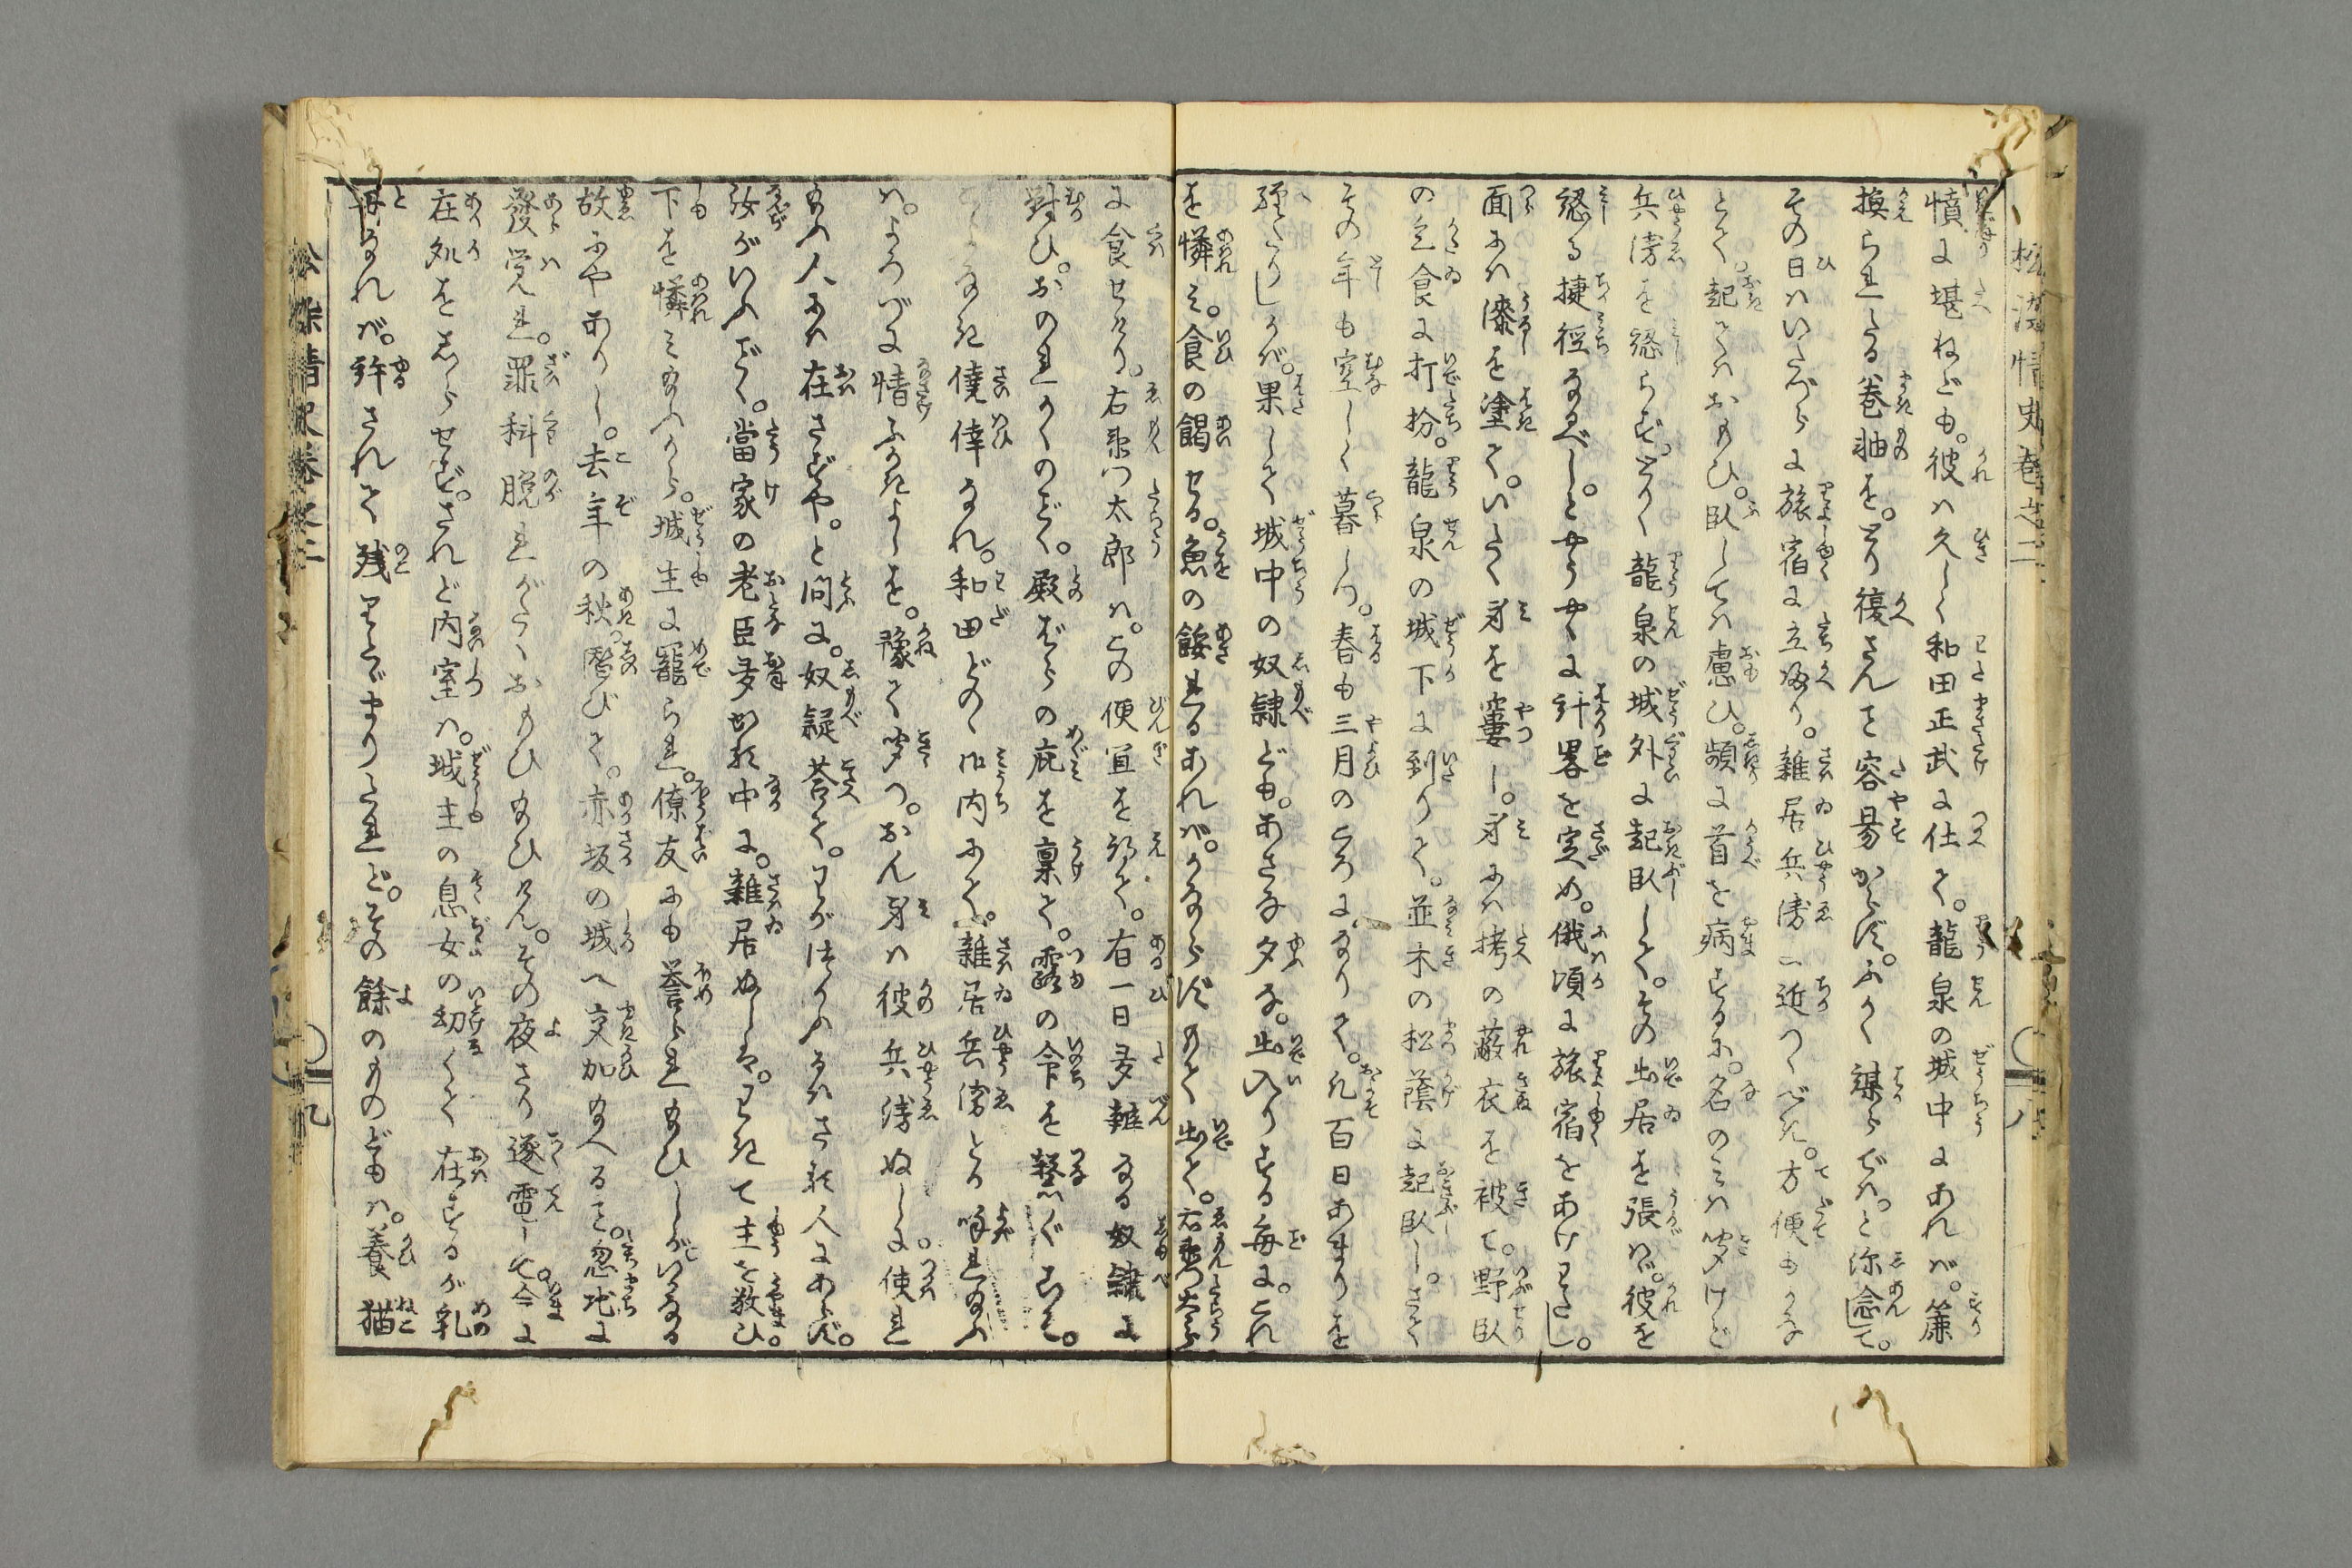 憤に堪ねども。彼は久しく和田正武に仕て。龍泉の城中にあれば。簾
換られたる巻軸を。とり復さんこと容易からず。ふかく謀らずは。と深念して。
その日はいたづらに旅宿に立帰り。雑居兵衛に近つくべき。方便もがな
とて。起てはおもひ。臥しては慮ひ。頻に首を病するに。名のみは聞けど
兵衛を認らず。とかく龍泉の城外に起臥して。その出居を張はゞ。彼を
認る捷径なるべし。とやうやくに計畧を定め。俄頃に旅宿をあけわたし。
面には漆を塗て。いたく身を窶し。身には栲の蔽衣を被て。野臥
の乞食に打扮。龍泉の城下に到りて。並木の松蔭に起臥し。さて
その年も空しく暮しつ。春も三月のころになりて。凡百日あまりを
経たりしかば。果して城中の奴隷ども。あさな夕な。出入りする毎に。これ
を憐み。食の餲せる。魚の餒れるあれば。かならずもて出て。右衛門太郎
に食せけり。右衛門太郎は。この便宜を得て。有一日多辯なる奴隷に
對ひ。おのれかくのごとく。殿ばらの庇を稟て。露の命を繋ぐこそ。
こよなき僥倖なれ。和田どのゝ御内にて。雑居兵衛とか呼れ給ふ
は。よろづに情ふかきよしを。豫て聞つ。おん身は彼兵衛ぬしに。使れ
給ふ人には在さずや。と問に。奴隷答て。わが仕るはさる人にあらず。
汝がいふごとく。當家の老臣夛かる中に。雑居ぬしは。わきて主を敬ひ。
下を憐み給ふから。城主に寵られ。僚友にも譽られ給ひしが。いかなる
故にやありし。去年の秋暦びて。赤坂の城へ交加給へること。忽地に
發覚れ。罪科脱れがたくおもひ給ひけん。その夜さり逐電して。今に
在処をしらせず。されど内室は。城主の息女の幼くて在するが乳
母なれば。許されて残りとゞまりたれど。その餘のものどもは。養猫